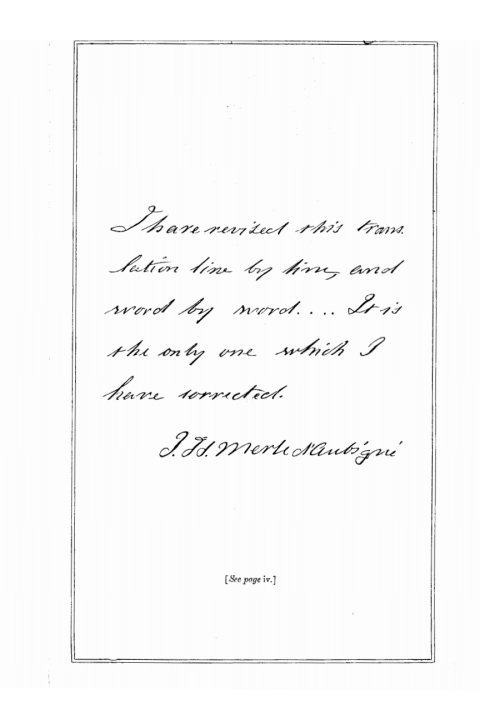 I have revised this trans
lation line by line, and
word by word.... It is
the only one which I
have corrected.
J. H. Merle d'Aubigné
[See page iv.]